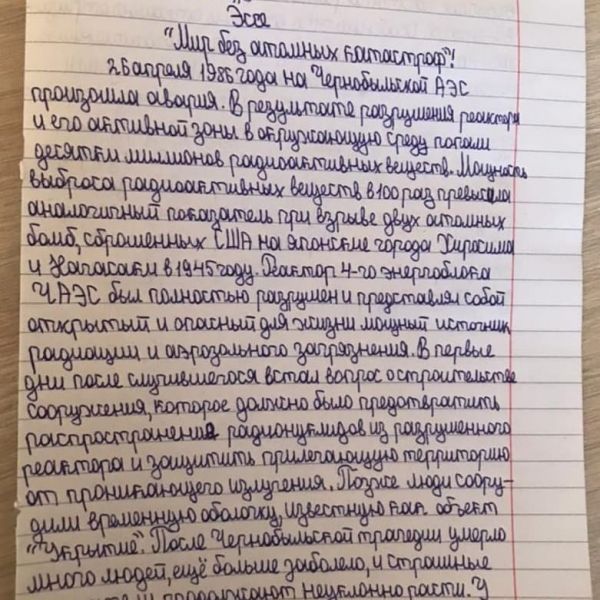 Эссе
"Мир без атомных катастроф"!
26 апреля 1986 года на Чернобыльской АЭС
произошла авария. В результате разрушения реактора
и его активной зоны в окружающую среду попали
десятки миллионов радиоактивных веществ. Мощность
выброса радиоактивных веществ в 100 раз превысила
аналогичный показатель при взрыве двух атомных
бомб, сброшенных США на японские города Хиросима
и Нагасаки в 1945 году. Реактор 4-го энергоблока
ЧАЭС был полностью разрушен и представлял собой
открытый и опасный для жизни мощный источник
радиации и аэрозольного загрязнения. В первые
дни после случившегося встал вопрос о строительстве
сооружения, которое должно было предотвратить
распространения радионуклидов из разрушенного
реактора и защитить прилегающую территорию
от проникающего излучения. Позже люди соору-
дили временную оболочку, известную как объект
"Укрытие". После Чернобыльской трагедии умерло
много людей, ещё больше заболело, и страшные
продолжают неуклонно расти. У